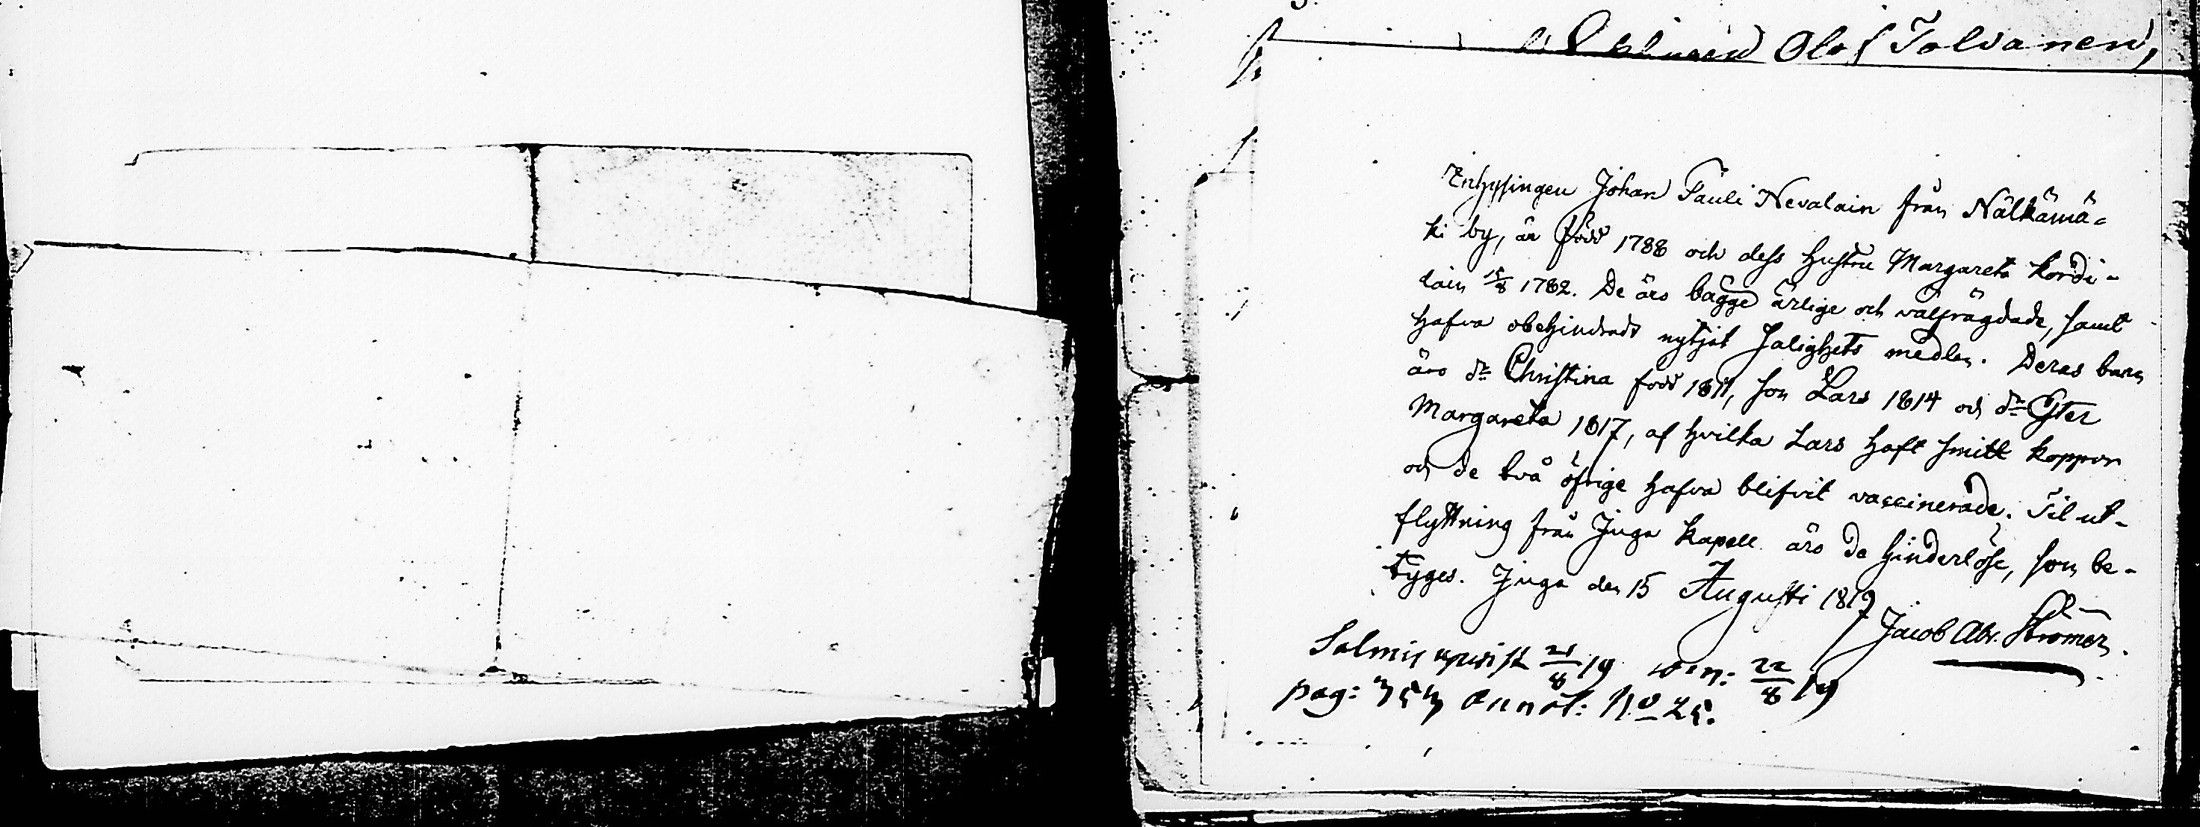 Olof Tolvanen,
Inhysingen Johan Pauli Nevalain från Nälkämä=
ki by, är född 1788 och dess hustru Margareta Kordi-
lain 15/8 1782. De äro bägge ärlige och välfrägdade, samt
hafva obehindradt nytjat salighets medlen. Deras barn
äro dr Christina född 1811, son Lars 1814 och dr Ester
Margareta 1817, af hvilka Lars haft smitt koppor
och de två öfrige hafva blifvit vaccinerade. Til ut-
flyttning från Juga Kapell äro de hinderlöse, som be-
tyges. Juga den 15 Augusti 1819
Jacob Abr. Strömer.
Salmis upvist 21/8 19 22/8 19
pag: 353 annot: No 25.